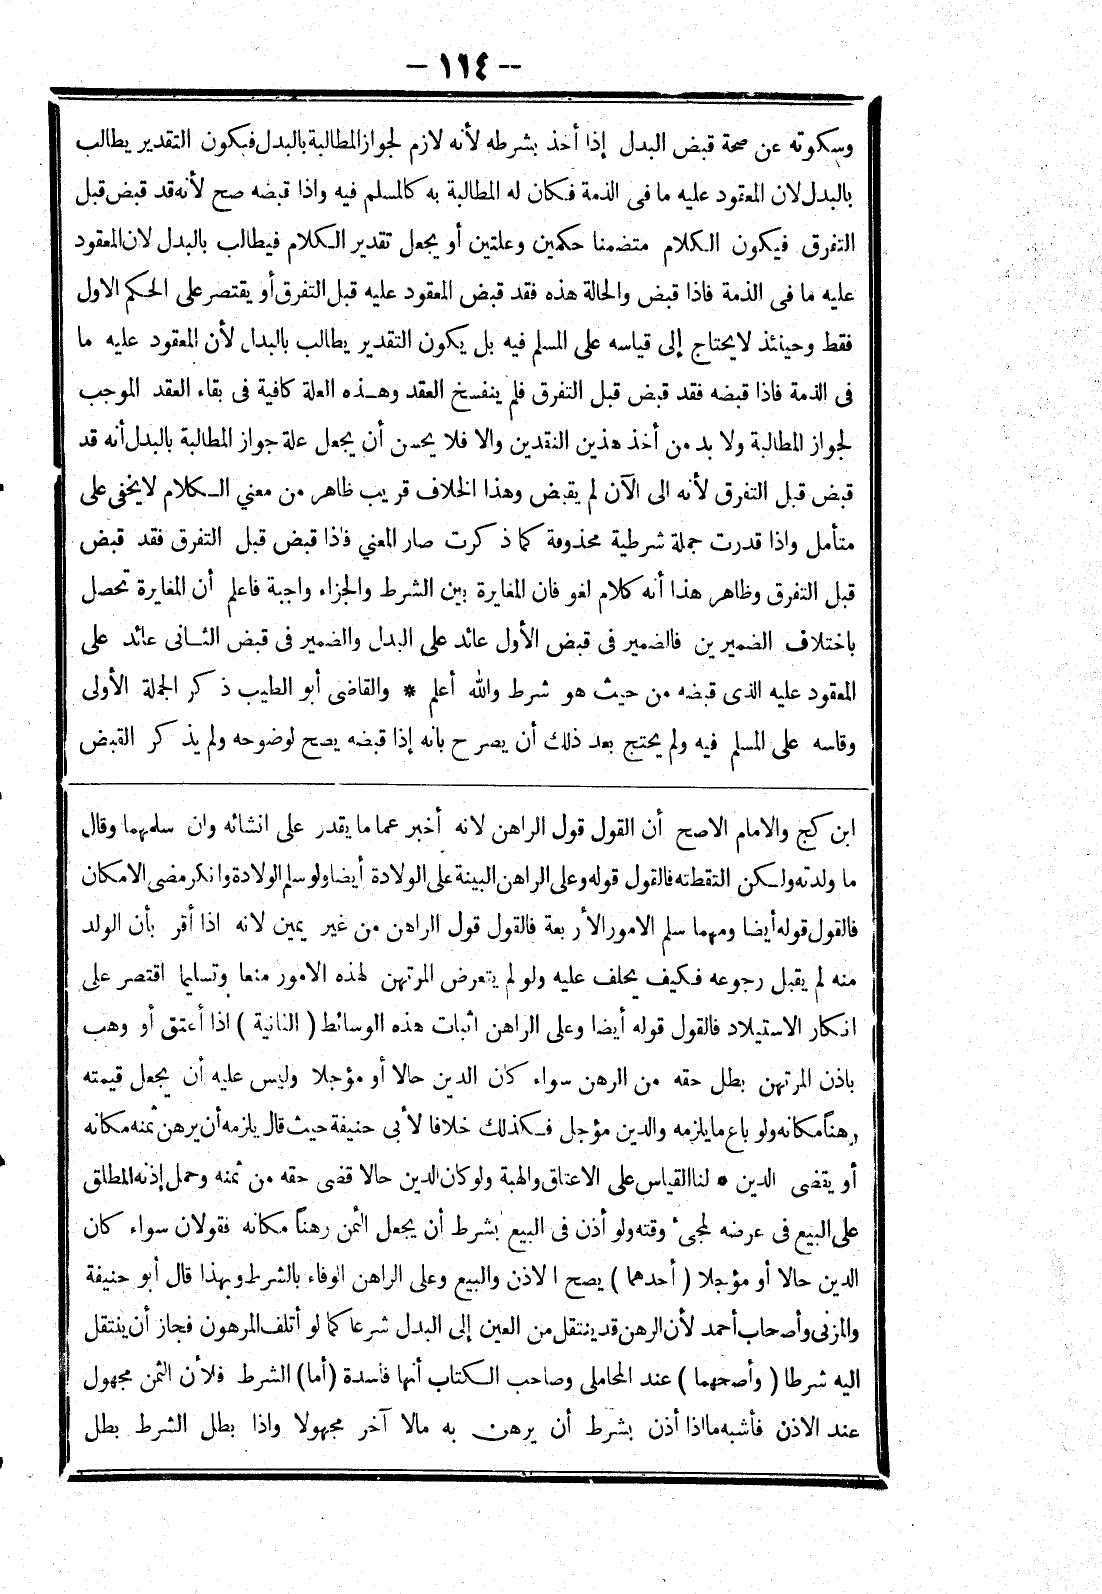 -- ١١٤ --
وسكوته عن صحة قبض البدل إذا أخذ بشرطه لأنه لازم لجواز المطالبة بالبدل فيكون التقدير يطالب
بالبدل لان المعقود عليه ما فى الذمة فكان له المطالبة به كالمسلم فيه واذا قبضه صح لأنه قد قبض قبل
التفرق فيكون الكلام متضمنا حكمين وعلتين أو يجعل تقدير الكلام فيطالب بالبدل لان المعقود
عليه ما فى الذمة فاذا قبض والحالة هذه فقد قبض المعقود عليه قبل التفرق أو يقتصر على الحكم الاول
فقط وحينئذ لا يحتاج إلى قياسه على المسلم فيه بل يكون التقدير يطالب بالبدل لأن المعقود عليه ما
فى الذمة فاذا قبضه فقد قبض قبل التفرق فلم ينفسخ العقد وهذه العلة كافية فى بقاء العقد الموجب
لجواز المطالبة ولا بد من أخذ هذين النقدين والا فلا يحسن أن يجعل علة جواز المطالبة بالبدل أنه قد
قبض قبل التفرق لأنه الى الآن لم يقبض وهذا الخلاف قريب ظاهر من معني الكلام لا يخفى على
متأمل واذا قدرت جملة شرطية محذوفة كما ذكرت صار المعني فاذا قبض قبل التفرق فقد قبض
قبل التفرق وظاهر هذا أنه كلام لغو فان المغايرة بين الشرط والجزاء واجبة فاعلم أن المغايرة تحصل
باختلاف الضميرين فالضمير فى قبض الأول عائد على البدل والضمير فى قبض الثانى عائد على
المعقود عليه الذى قبضه من حيث هو شرط والله أعلم * والقاضى أبو الطيب ذكر الجملة الأولى
وقاسه على المسلم فيه ولم يحتج بعد ذلك أن يصرح بانه إذا قبضه يصح لوضوحه ولم يذكر القبض
ابن كج والامام الاصح أن القول قول الراهن لانه أخبر عما ما يقدر على انشائه وان سلمهما وقال
ما ولدته ولكن التقطته فالقول قوله وعلى الراهن البينة على الولادة أيضا ولو سلم الولادة وانكر مضى الامكان
فالقول قوله أيضا ومهما سلم الامور الأربعة فالقول قول الراهن من غير يمين لانه اذا أقر بأن الولد
منه لم يقبل رجوعه فكيف يحلف عليه ولو لم يتعرض المرتهن لهذه الامور منعا وتسليما اقتصر على
انكار الاستيلاد فالقول قوله أيضا وعلى الراهن اثبات هذه الوسائط ( الثانية ) اذا أعتق أو وهب
باذن المرتهن بطل حقه من الرهن سواء كان الدين حالا أو مؤجلا وليس عليه أن يجعل قيمته
رهناً مكانه ولو باع ما يلزمه والدين مؤجل فكذلك خلافا لأبى حنيفة حيث قال يلزمه أن يرهن ثمنه مكانه
أو يقضى الدين * لنا القياس على الاعتاق والهبة ولو كان الدين حالا قضى حقه من ثمنه وحمل إذنه المطلق
على البيع فى عرضه لمجىء وقته ولو أذن فى البيع بشرط أن يجعل الثمن رهناً مكانه فقولان سواء كان
الدين حالا أو مؤجلا ( أحدهما ) يصح الاذن والبيع وعلى الراهن الوفاء بالشرط وبهذا قال أبو حنيفة
والمزنى وأصحاب أحمد لأن الرهن قد ينتقل من العين إلى البدل شرعا كما لو أتلف المرهون فجاز أن ينتقل
اليه شرطا ( وأصحهما ) عند المحاملى وصاحب الكتاب أنها فاسدة (أما) الشرط فلأن الثمن مجهول
عند الاذن فأشبه ما اذا أذن بشرط أن يرهن به مالا آخر مجهولا واذا بطل الشرط بطل